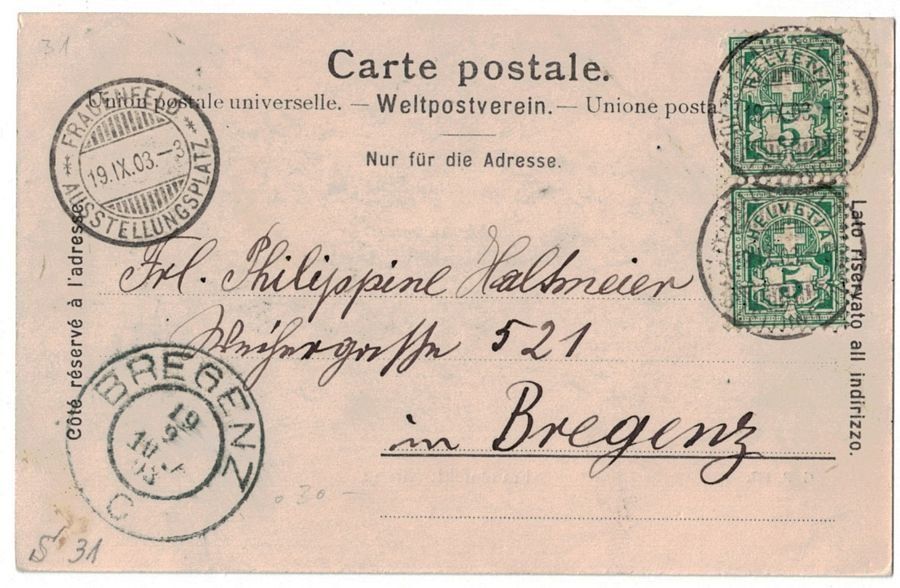 31
Carte postale.
Union postale universelle. — Weltpostverein. — Unione posta
Nur für die Adresse.
* FRAUENFELD *
19.IX.03.-3
AUSSTELLUNGSPLATZ
HELVETIA
5
HELVETIA
5
Côté réservé à l'adresse
Lato riservato all indirizzo.
Frl. Philippine Haltmeier
Weihergasse 521
in Bregenz
BREGENZ
19
9
03
C
o 30 –
31